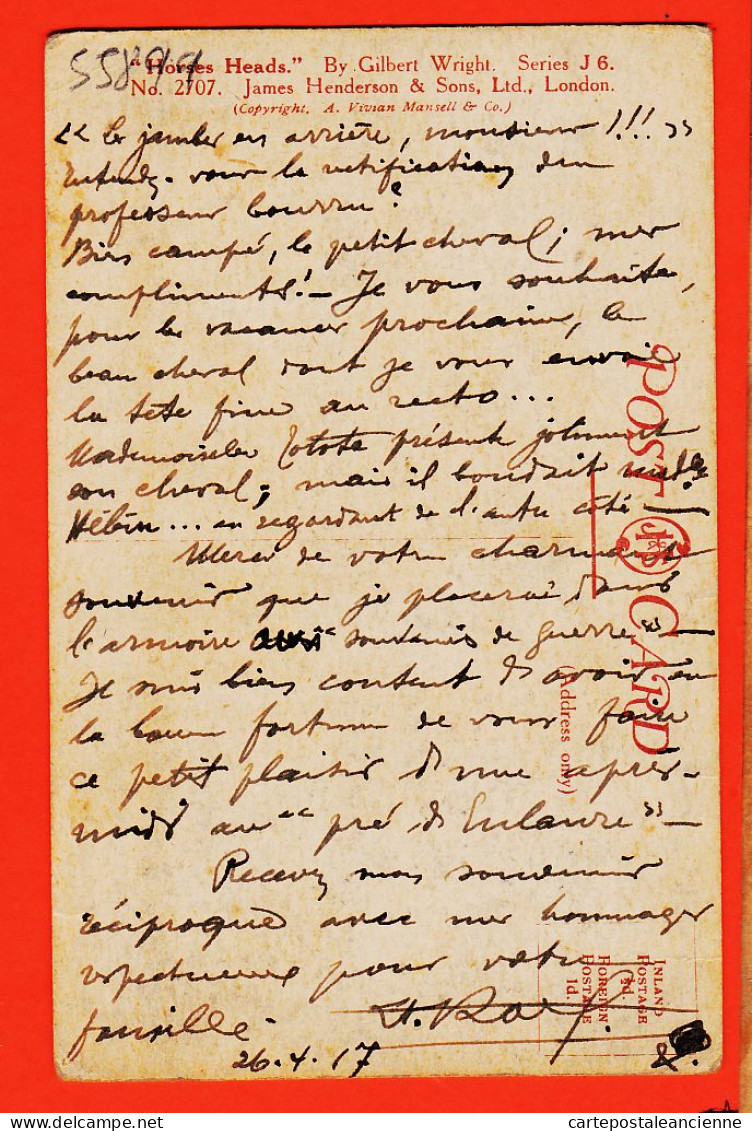 55899
"Horses Heads." By Gilbert Wright. Series J 6.
No. 2707. James Henderson & Sons, Ltd., London.
(Copyright. A. Vivian Mansell & Co.)
« les jambes en arrière, monsieur !!! »
Entendez-vous la rectification d'un
professeur bourru ?
Bien campé, le petit cheval ; mes
compliments ! - Je vous souhaite,
pour les vacances prochaines, le
beau cheval dont je vous envoie
la tête fine au recto...
Mademoiselle Totote présente joliment
son cheval ; mais il boudait
Hébin... en regardant de l'autre côté -
Merci de votre charmant
souvenir que je placerai dans
l'armoire aux "souvenirs de guerre" -
Je suis bien content d'avoir eu
la bonne fortune de vous faire
ce petit plaisir d'une après-
midi au "pré de " -
Recevez mon souvenir
réciproque avec mes hommages
respectueux pour votre
famille.
26.4.17
POST CARD
(Address only)
INLAND
POSTAGE
½d.
FOREIGN
POSTAGE
1d.
cartepostaleancienne